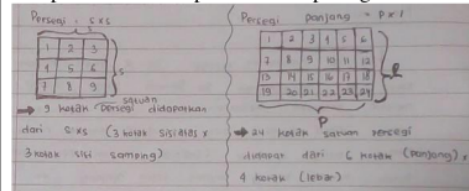 Persegi : s x s
s
1 2 3
4 5 6
7 8 9
s
→ 9 kotak persegi satuan didapatkan
dari s x s (3 kotak sisi atas x
3 kotak sisi samping)
Persegi panjang = p x l
1 2 3 4 5 6
7 8 9 10 11 12
13 14 15 16 17 18
19 20 21 22 23 24
l
P
→ 24 kotak satuan persegi
didapat dari 6 kotak (panjang) x
4 kotak (lebar)